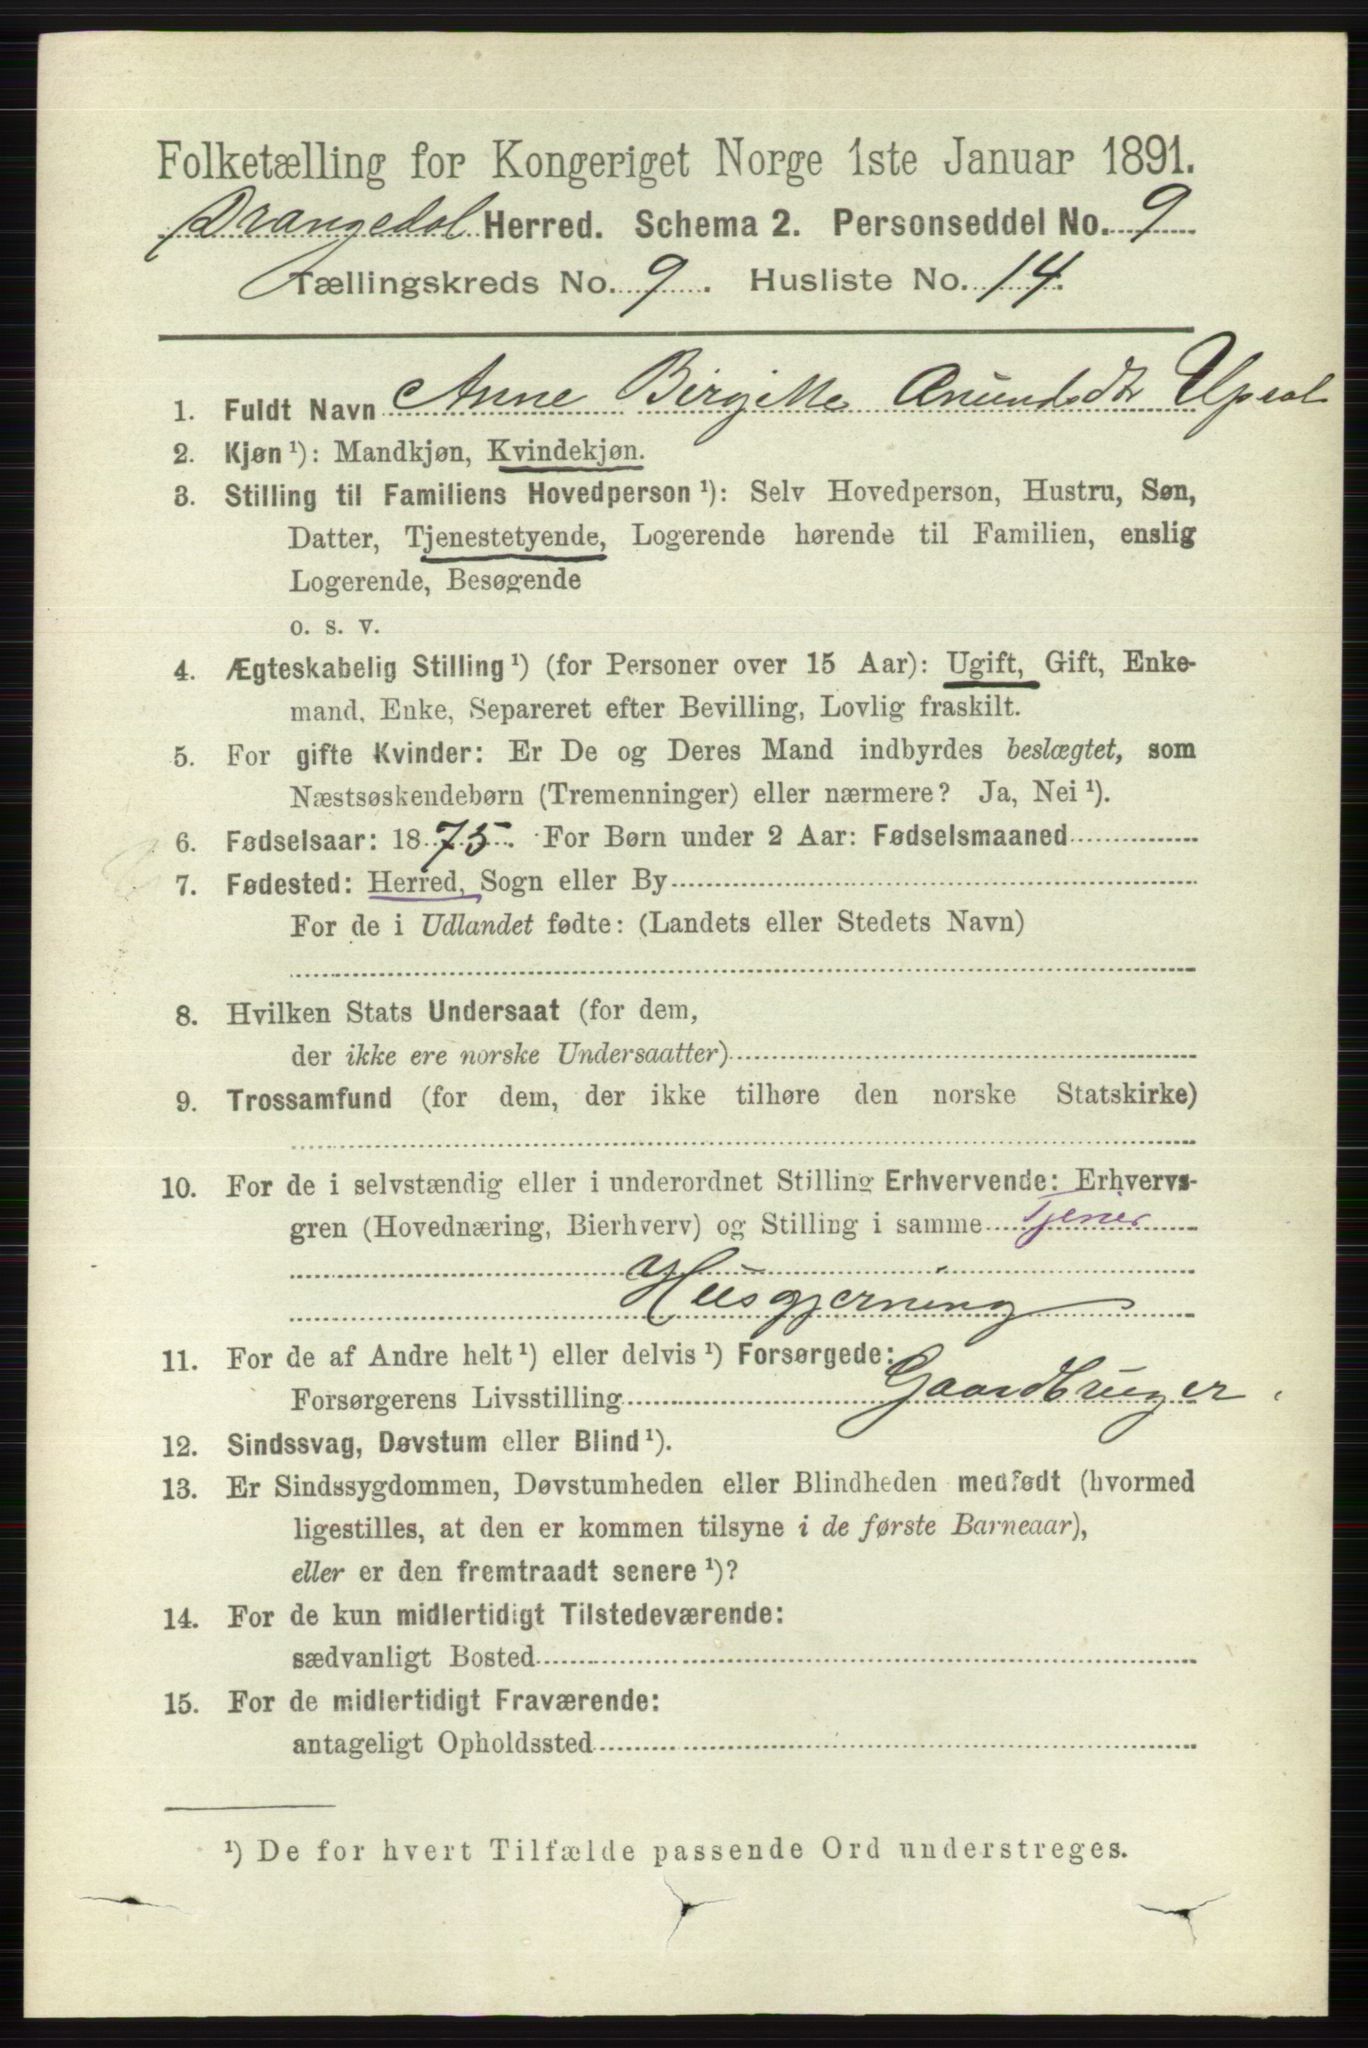 Folketælling for Kongeriget Norge 1ste Januar 1891.
Drangedal Herred. Schema 2. Personseddel No. 9
Tællingskreds No. 9. Husliste No. 14.
1. Fuldt Navn Anne Birgitte Anundsdtr Upsal
2. Kjøn ¹): Mandkjøn, Kvindekjøn.
3. Stilling til Familiens Hovedperson ¹): Selv Hovedperson, Hustru, Søn,
Datter, Tjenestetyende, Logerende hørende til Familien, enslig
Logerende, Besøgende
o. s. v.
4. Ægteskabelig Stilling ¹) (for Personer over 15 Aar): Ugift, Gift, Enke-
mand, Enke, Separeret efter Bevilling, Lovlig fraskilt.
5. For gifte Kvinder: Er De og Deres Mand indbyrdes beslægtet, som
Næstsøskendebørn (Tremenninger) eller nærmere? Ja, Nei ¹).
6. Fødselsaar: 1875. For Børn under 2 Aar: Fødselsmaaned
7. Fødested: Herred, Sogn eller By
For de i Udlandet fødte: (Landets eller Stedets Navn)
8. Hvilken Stats Undersaat (for dem,
der ikke ere norske Undersaatter)
9. Trossamfund (for dem, der ikke tilhøre den norske Statskirke)
10. For de i selvstændig eller i underordnet Stilling Erhvervende: Erhvervs-
gren (Hovednæring, Bierhverv) og Stilling i samme Tjener
Husgjerning
11. For de af Andre helt ¹) eller delvis ¹) Forsørgede:
Forsørgerens Livsstilling Gaardbruger.
12. Sindssvag, Døvstum eller Blind ¹).
13. Er Sindssygdommen, Døvstumheden eller Blindheden medfødt (hvormed
ligestilles, at den er kommen tilsyne i de første Barneaar),
eller er den fremtraadt senere ¹)?
14. For de kun midlertidigt Tilstedeværende:
sædvanligt Bosted
15. For de midlertidigt Fraværende:
antageligt Opholdssted
¹) De for hvert Tilfælde passende Ord understreges.